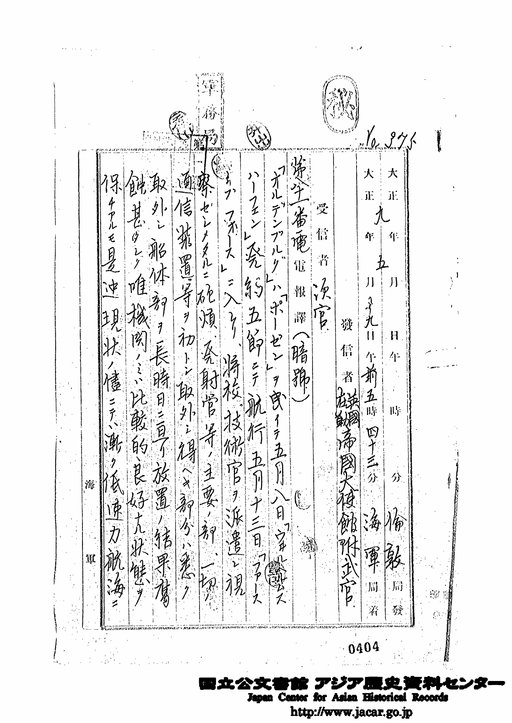 軍務局
秘
No. 975
大正 年 月 日午 時 分 倫敦局發
大正九年五月 九日午前五時四十三分 海軍局着
發信者 英國在勤帝國大使館附武官
受信者 次官
電報譯（暗號）
「オルデンブルグ」ハ「ポーゼン」ヲ曳イテ五月八日
ハーフェン」発約五節ニテ航行五月十三日「ファース
オブ フォース」ニ入ル、将校技術官ヲ派遣シ視
察セシメタルニ砲煩発射管等ノ主要部ハ一切ノ
通信装置等ヲ初トシ取外シ得ヘキ部分ハ悉ク
取外シ船体部ヲ長時日ニ亘リ放置ノ結果腐
蝕甚ダシク唯機関ノミハ比較的良好ナル状態ヲ
保チアルモ是迚現状ノ儘ニテハ漸ク低速力航海ニ
海軍
0404
国立公文書館 アジア歴史資料センター
Japan Center for Asian Historical Records
http://www.jacar.go.jp